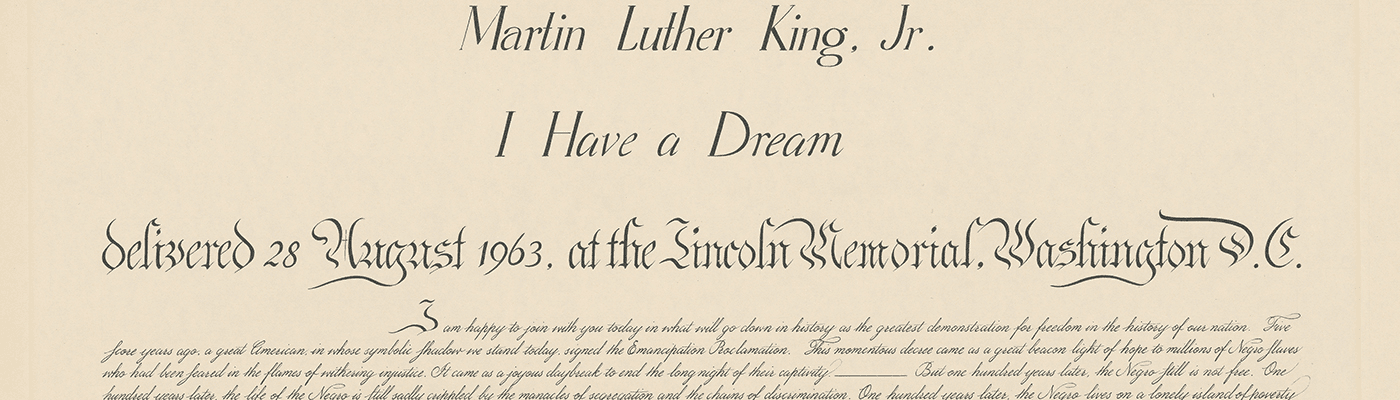 Martin Luther King, Jr.
I Have a Dream
delivered 28 August 1963, at the Lincoln Memorial, Washington D.C.
I am happy to join with you today in what will go down in history as the greatest demonstration for freedom in the history of our nation. Five
score years ago, a great American, in whose symbolic shadow we stand today, signed the Emancipation Proclamation. This momentous decree came as a great beacon light of hope to millions of Negro slaves
who had been seared in the flames of withering injustice. It came as a joyous daybreak to end the long night of their captivity. But one hundred years later, the Negro still is not free. One
hundred years later, the life of the Negro is still sadly crippled by the manacles of segregation and the chains of discrimination. One hundred years later, the Negro lives on a lonely island of poverty